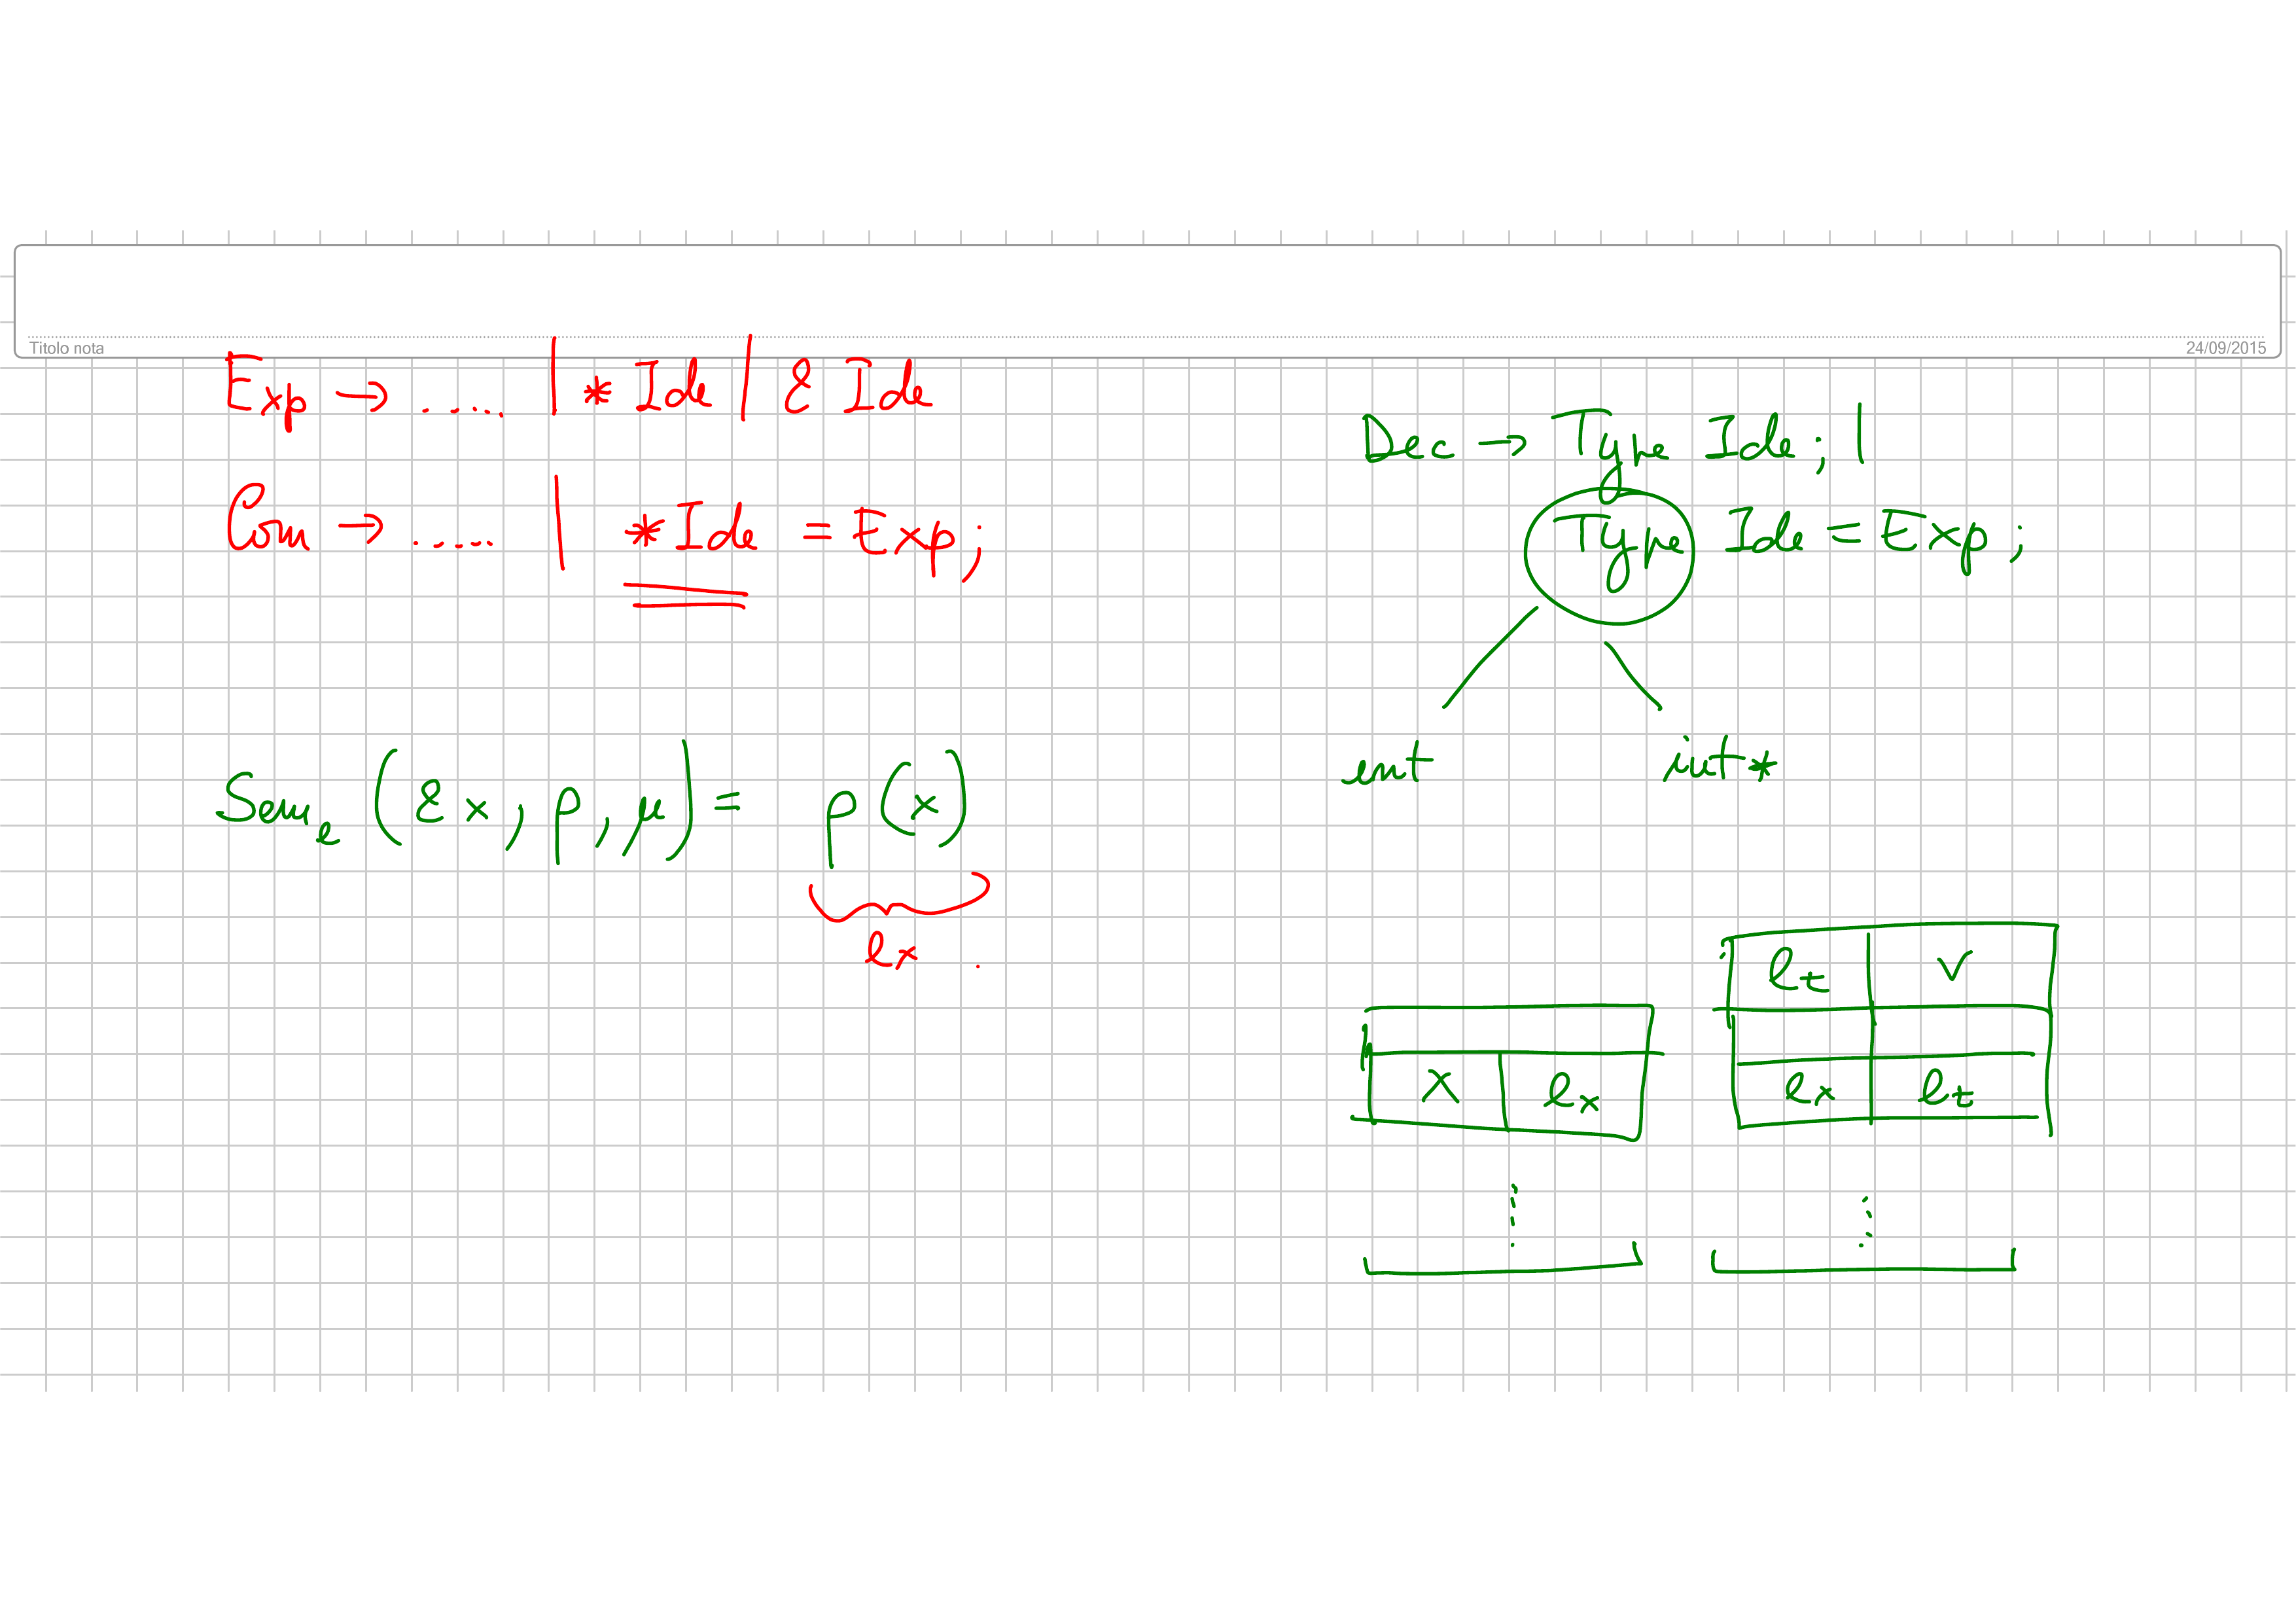 Titolo nota
24/09/2015
Exp → ..... | * Ide | & Ide
Com → ..... | * Ide = Exp;
Dec → Type Ide; |
Type Ide = Exp;
int int*
Sem_e (&x, ρ, μ) = ρ(x)
l_x
l_t v
x l_x
l_x l_t